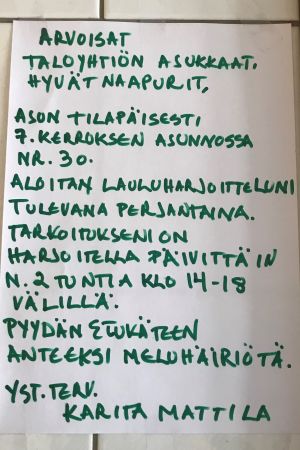 ARVOISAT
TALOYHTIÖN ASUKKAAT,
HYVÄT NAAPURIT,
ASUN TILAPÄISESTI
7. KERROKSEN ASUNNOSSA
NR. 30.
ALOITAN LAULUHARJOITTELUNI
TULEVANA PERJANTAINA.
TARKOITUKSENI ON
HARJOITELLA PÄIVITTÄIN
N. 2 TUNTIA KLO 14-18
VÄLILLÄ.
PYYDÄN ETUKÄTEEN
ANTEEKSI MELUHÄIRIÖTÄ.
YST. TERV.
KARITA MATTILA